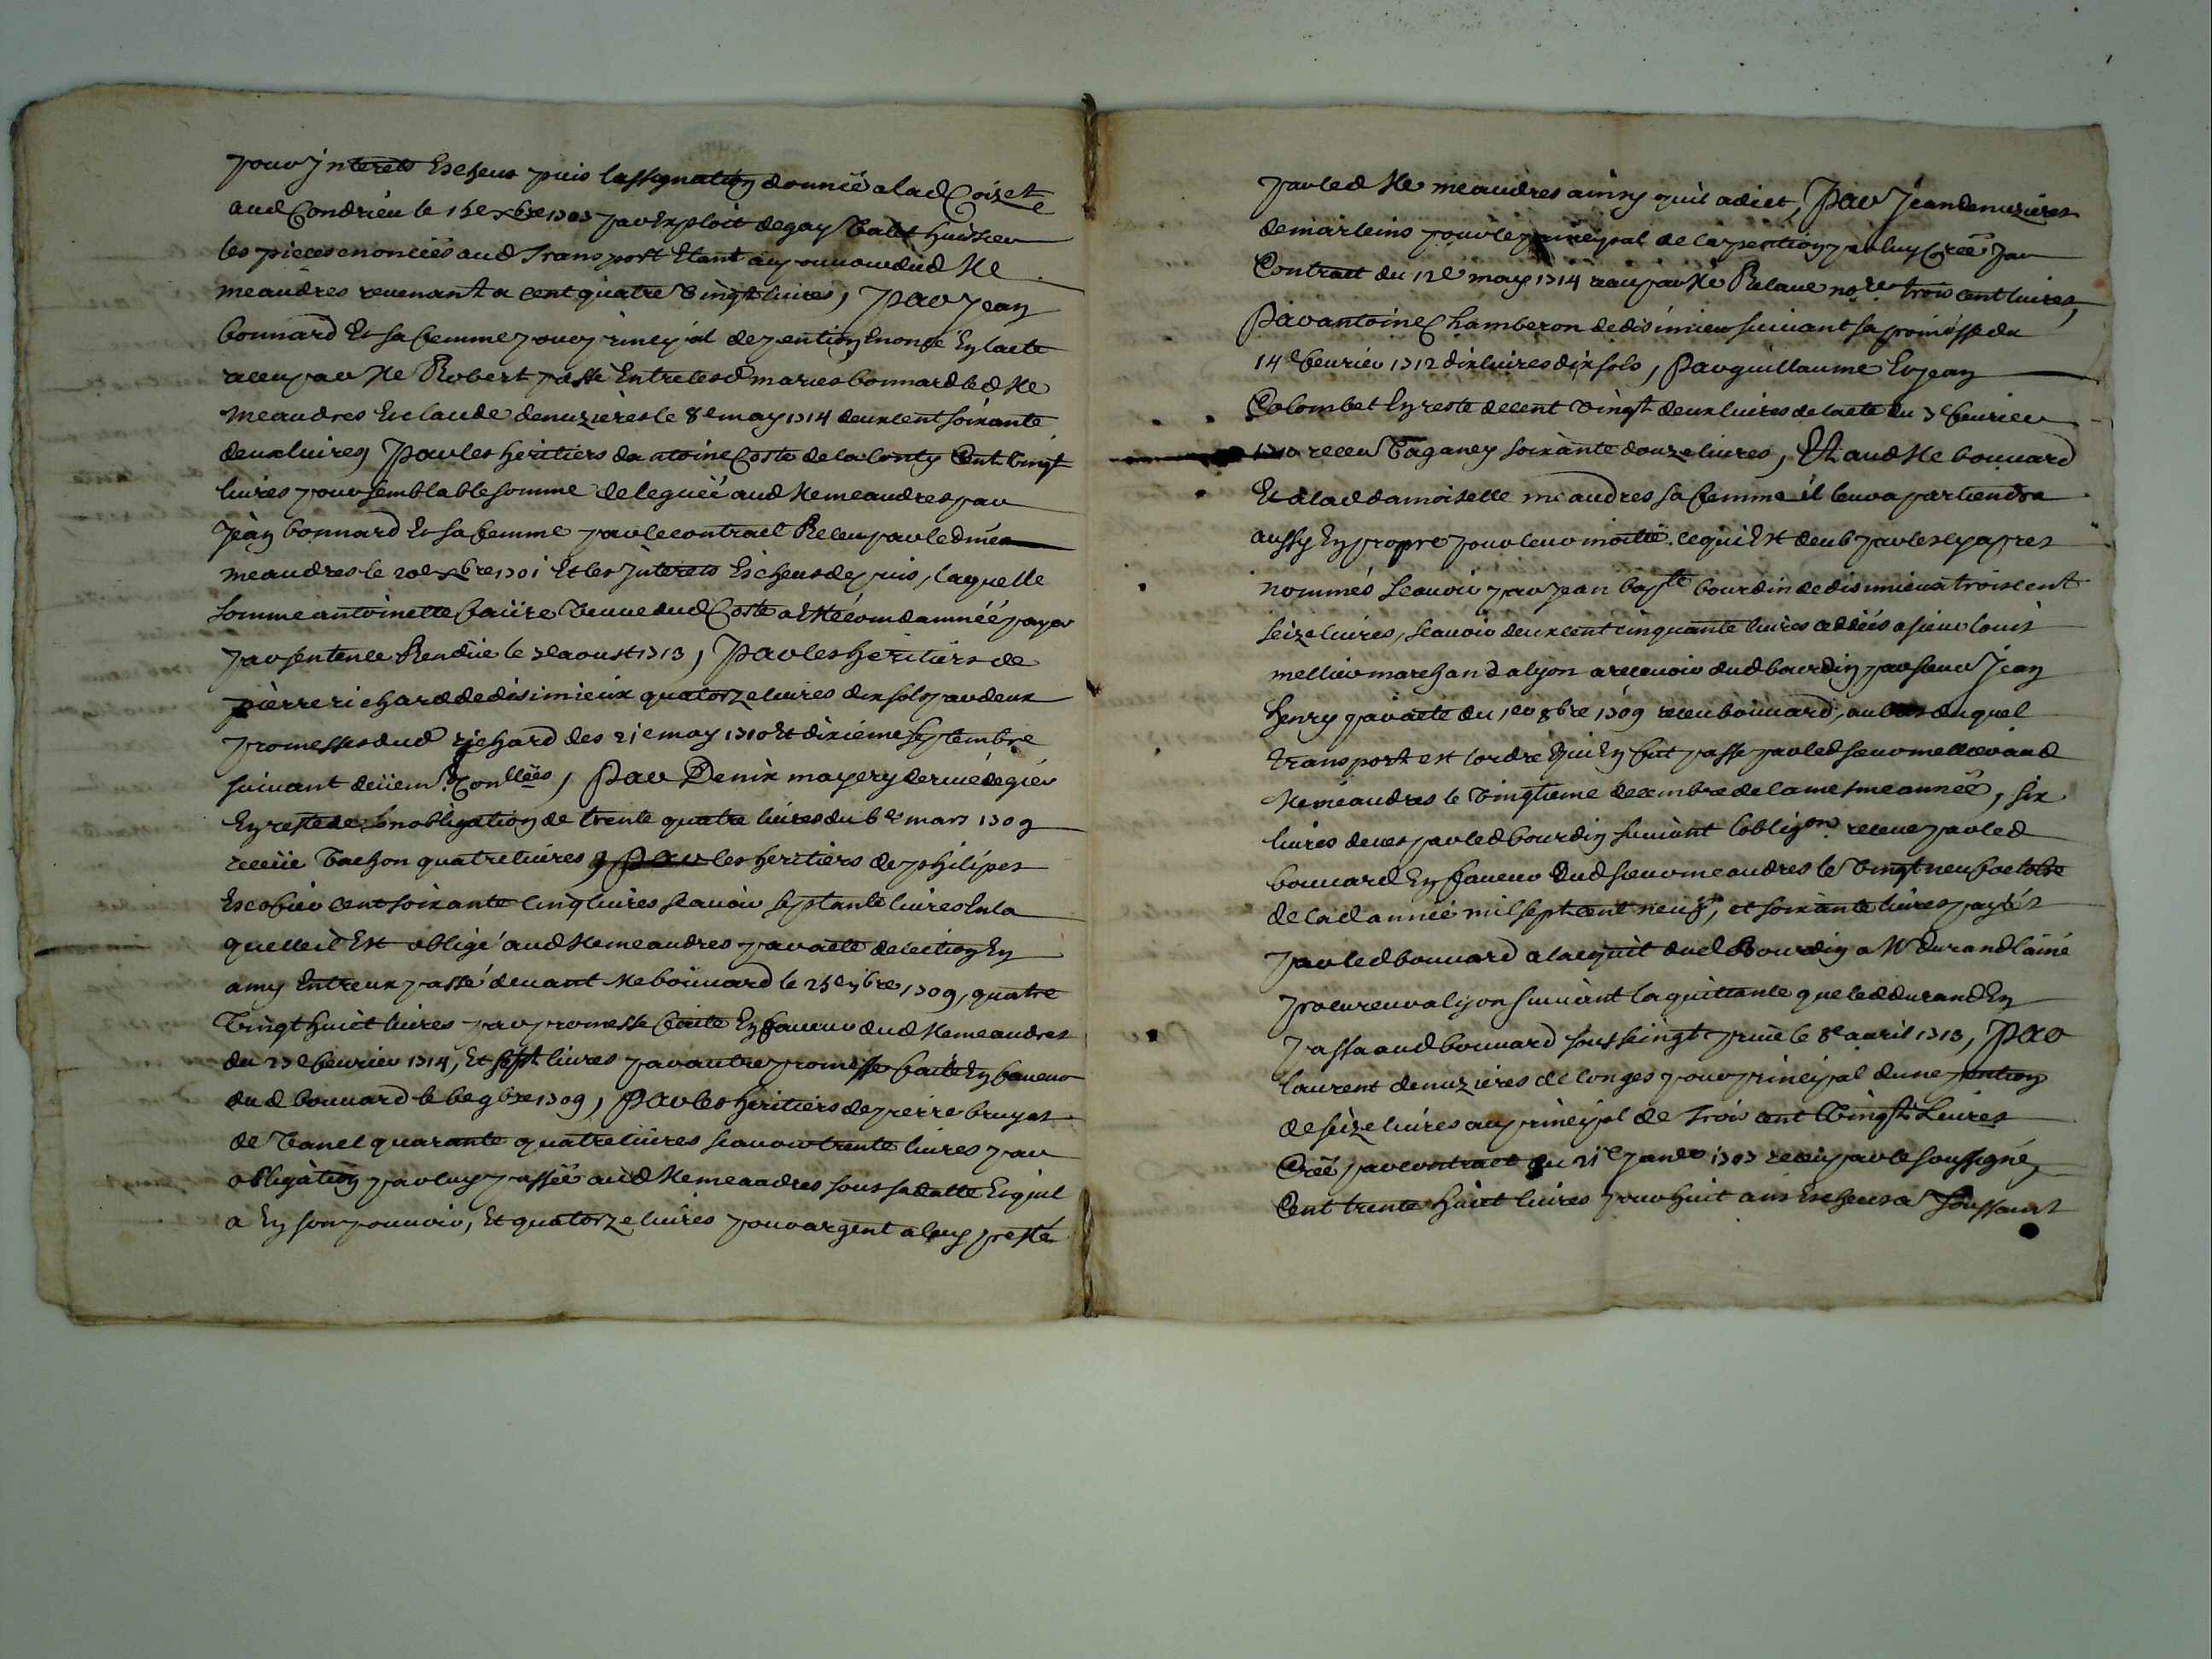 pour Interets Escheus puis lassignation donnée a lad Coizet
aud Condrieu le 15e xbre 1703 par Exploit de gay Talit huissier
les pieces enoncées aud Transport Etant au pouvoir dud Me
meaudres revenant a cent quatre vingt livres, Par Jean
bonnard Et sa femme pour principal de pention Enoncé En lacte
receu par Me Robert passé Entre lesd mariés bonnard led Me
meaudres Et claude denuzières le 8e may 1714 deux cent soixante
deux livres, Par les heritiers dantoine Coste de la Conty Cent vingt
livres pour semblable somme deleguéé aud Me meaudres par
Jean bonnard Et sa femme par le contract Receu par led me
meaudres le 20e xbre 1701 Et les Interets Escheus depuis, laquelle
somme antoinette faure veuve dud Coste a Eté condamnéé payer
par sentence Rendüe le 3e aoust 1713, Par les heritiers de
pierre richard de disimieux quatorze livres dix sols par deux
promesses dud richard des 21e may 1710 Et dixieme septembre
suivant deüem. Conllées, Par Denix mayery de rivédegier
En reste de son obligation de trente quatre livres du 6e mars 1709
receüe Vachon quatre livres, Par les heritiers de philipes
Escofier cent soixante cinq livres scavoir septante livres En la
quelle il Est obligé aud Me meaudres par acte delection En
amy Entreux passé devant Me boüvard le 25e 9bre 1709, quatre
vingt huict livres par promesse faite En faveur dud Me meaudres
du 23e fevrier 1714, Et sept livres par autre promesse faite En faveur
dud bouvard le 6e 9bre 1709, Par les heritiers de pierre bruyas
de Tanel quarante quatre livres scavoir trente livres par
obligation par luy passée aud Me meaudres sous sa datte Et quil
a En son pouvoir, Et quatorze livres pour argent a luy presté
par led Me meaudres ainsy quil a dict, Par Jean denuzieres
de marleins pour le principal de la pention par luy Créé par
Contract du 12e may 1714 receu par Me Relave nore trois cent livres,
Par antoine Chamberon de disimieu suivant sa promesse du
14e fevrier 1712 dix livres dix sols, Par guillaume Et jean
Colombet En reste de cent vingt deux livres de lacte du 3e fevrier
1710 receu Paganey soixante douze livres, Et aud Me bouvard
Et a lad damoiselle meaudres sa femme il leur apartiendra
aussy En propre pour leur moitié ce qui Est deub par les cy apres
nommés Scavoir par Jean bapte bourdin de disimieux trois cent
seize livres, scavoir deux cent cinquante livres cedéés a sieur louis
mellier marchand a lyon a recevoir dud bourdin par sieur Jean
henry par acte du 1er 8bre 1709 receu boüvard, au bas duquel
transport est lordre qui En fut passé par led sieur mellier aud
Me meaudres le vingtieme decembre de la mesme année, six
livres deues par led bourdin suivant lobligon receue par led
bouvard En faveur dud sieur meaudres le vingt neuf octobre
de lad année mil sept cent neuf, et soixante livres payéés
par led bouvard a lacquit dud Bourdin a Mr durand lainé
procureur a lyon suivant la quittance que led durand En
passa aud bouvard sous seingt privé le 8e avril 1713, Par
laurent denuzieres de longes pour principal dune pention
de seize livres au principal de Trois cent vingt Livres
Créé par contract du 21e janer 1703 receu par le soussigné,
Cent trente huict livres pour huit ans Escheus a Toussaint